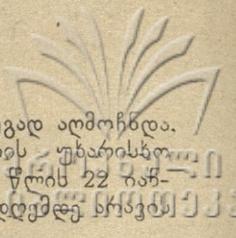 გად აღმოჩნდა.
ის უხარისხო
წლის 22 იან-
დღემდე არავის